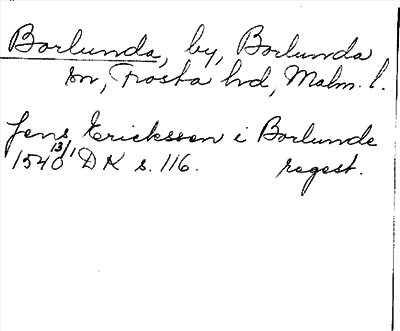 Borlunda, by, Borlunda
sn, Frosta hd, Malm. l.
Jens Ericksson i Borlunde
1540 13/1 DK s. 116. regest.